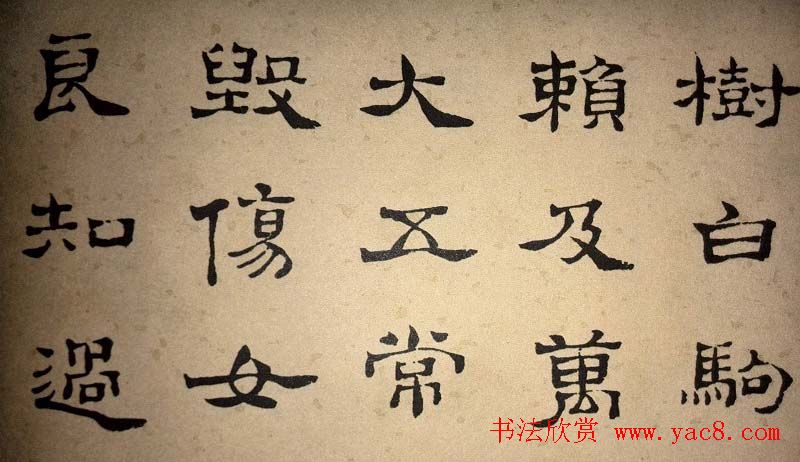 樹白駒
賴及萬
大五常
毀傷女
良知過
书法欣赏 www.yac8.com